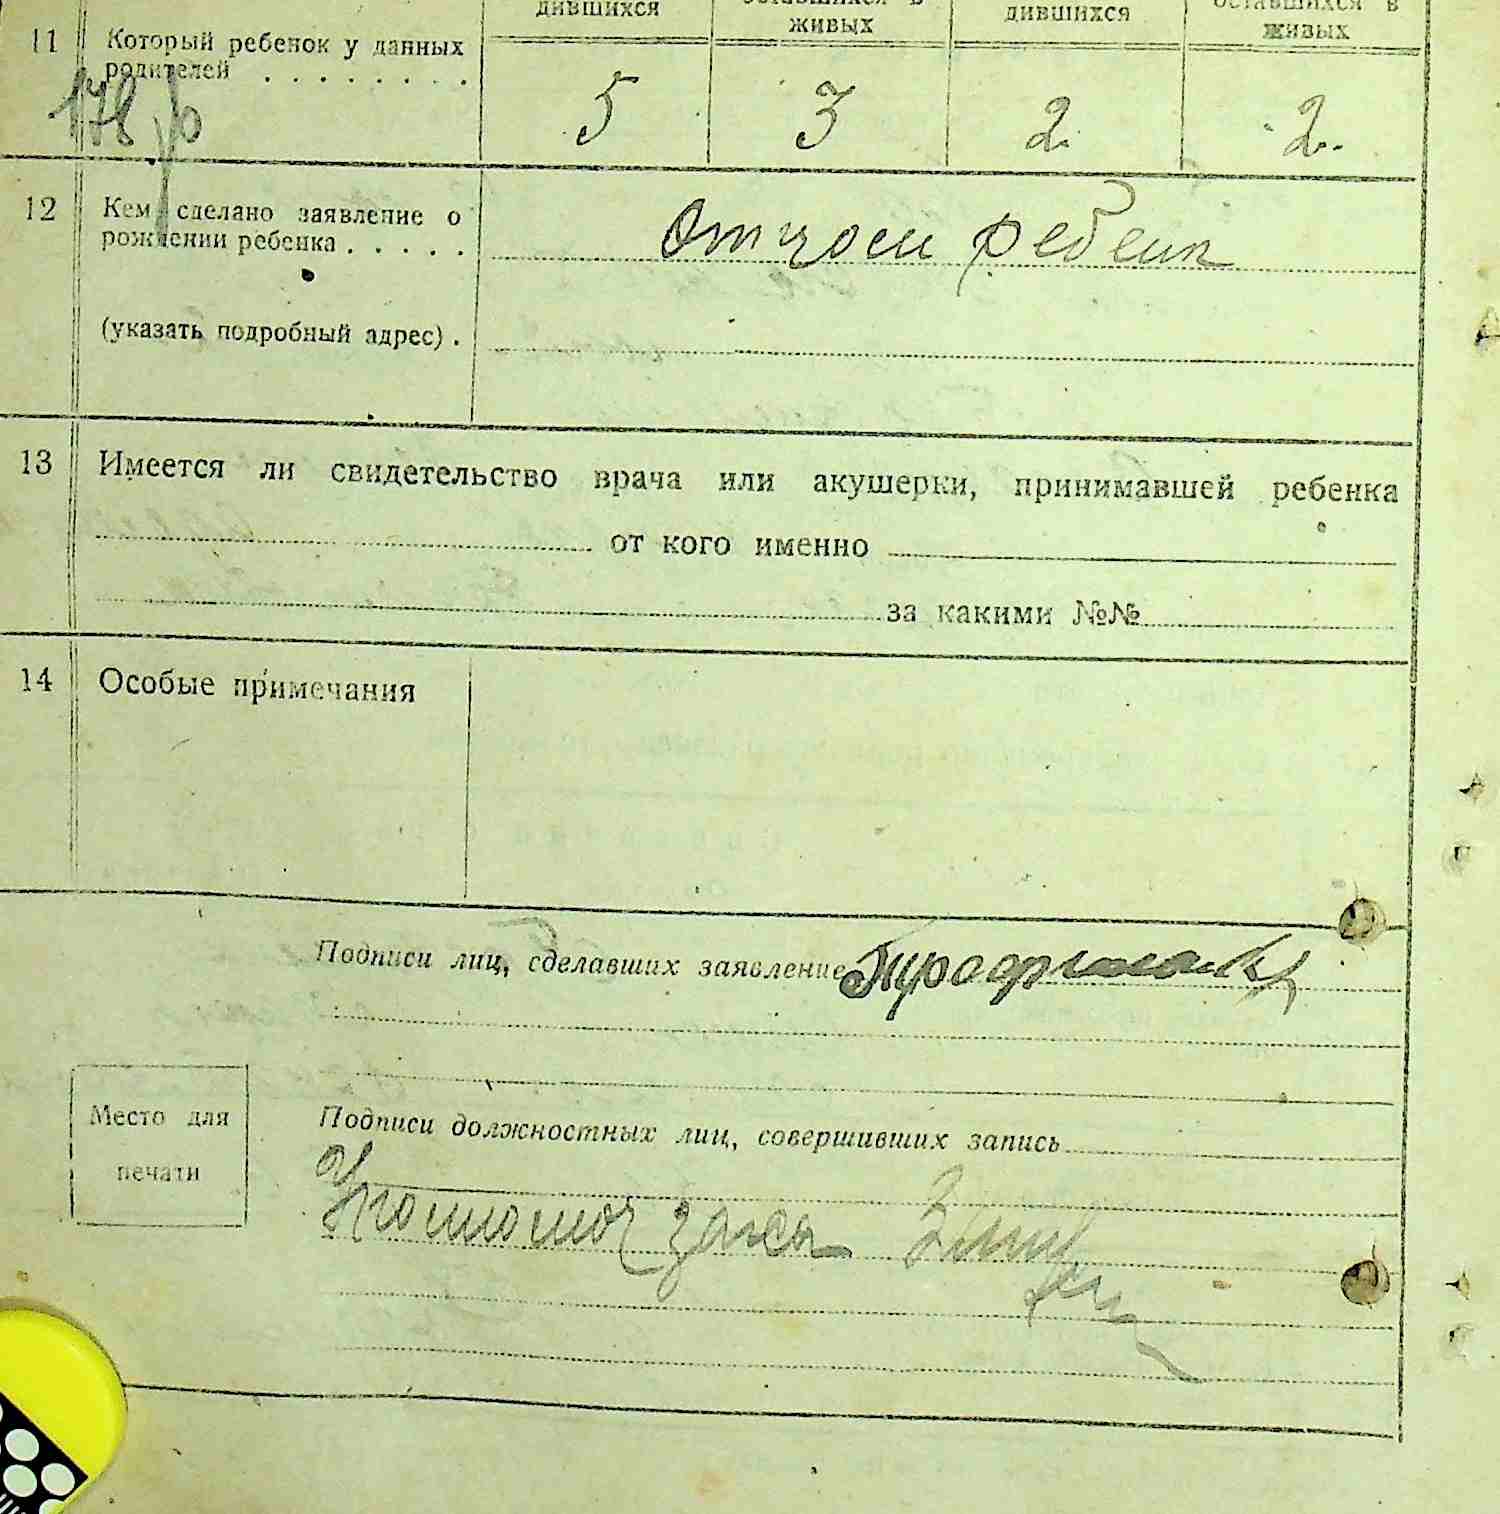 дившихся оставшихся в дившихся оставшихся в
живых живых
11 Который ребенок у данных
родителей . . . . . . . .
5 3 2. 2.
178
12 Кем сделано заявление о
рождении ребенка . . . . . Отцом ребенк
(указать подробный адрес) .
13 Имеется ли свидетельство врача или акушерки, принимавшей ребенка
от кого именно
за какими №№
14 Особые примечания
Подписи лиц, сделавших заявление
Место для
печати
Подписи должностных лиц, совершивших запись